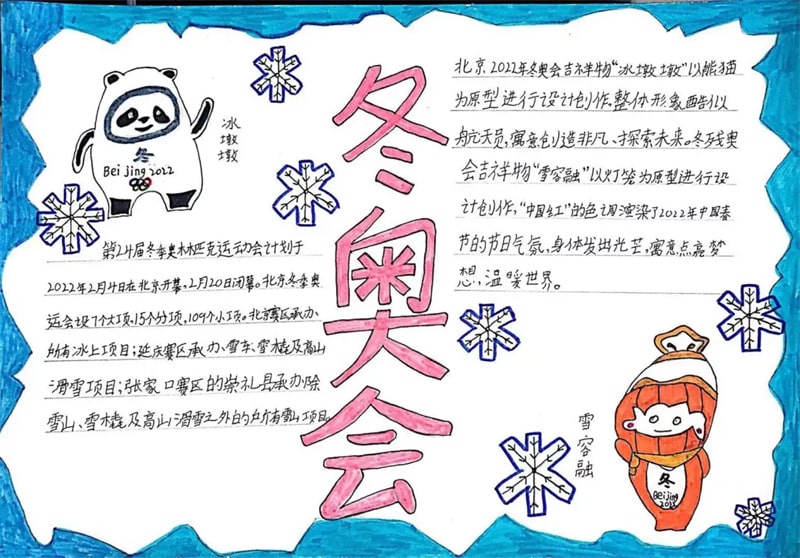 冬奥会
冰墩墩
冬
Beijing 2022
第24届冬季奥林匹克运动会计划于
2022年2月4日在北京开幕,2月20日闭幕。北京冬季奥
运会设7个大项,15个分项,109个小项。北京赛区承办、
所有冰上项目;延庆赛区承办、雪车、雪橇及高山
滑雪项目;张家口赛区的崇礼县承办除
雪山、雪橇及高山滑雪之外的所有雪山项目。
北京2022年冬奥会吉祥物“冰墩墩”以熊猫
为原型进行设计创作。整体形象酷似
航天员,寓意创造非凡、探索未来。冬残奥
会吉祥物“雪容融”以灯笼为原型进行设
计创作,“中国红”的色调渲染了2022年中国春
节的节日气氛,身体发出光芒,寓意点亮梦
想,温暖世界。
雪容融
冬
Beijing
2022